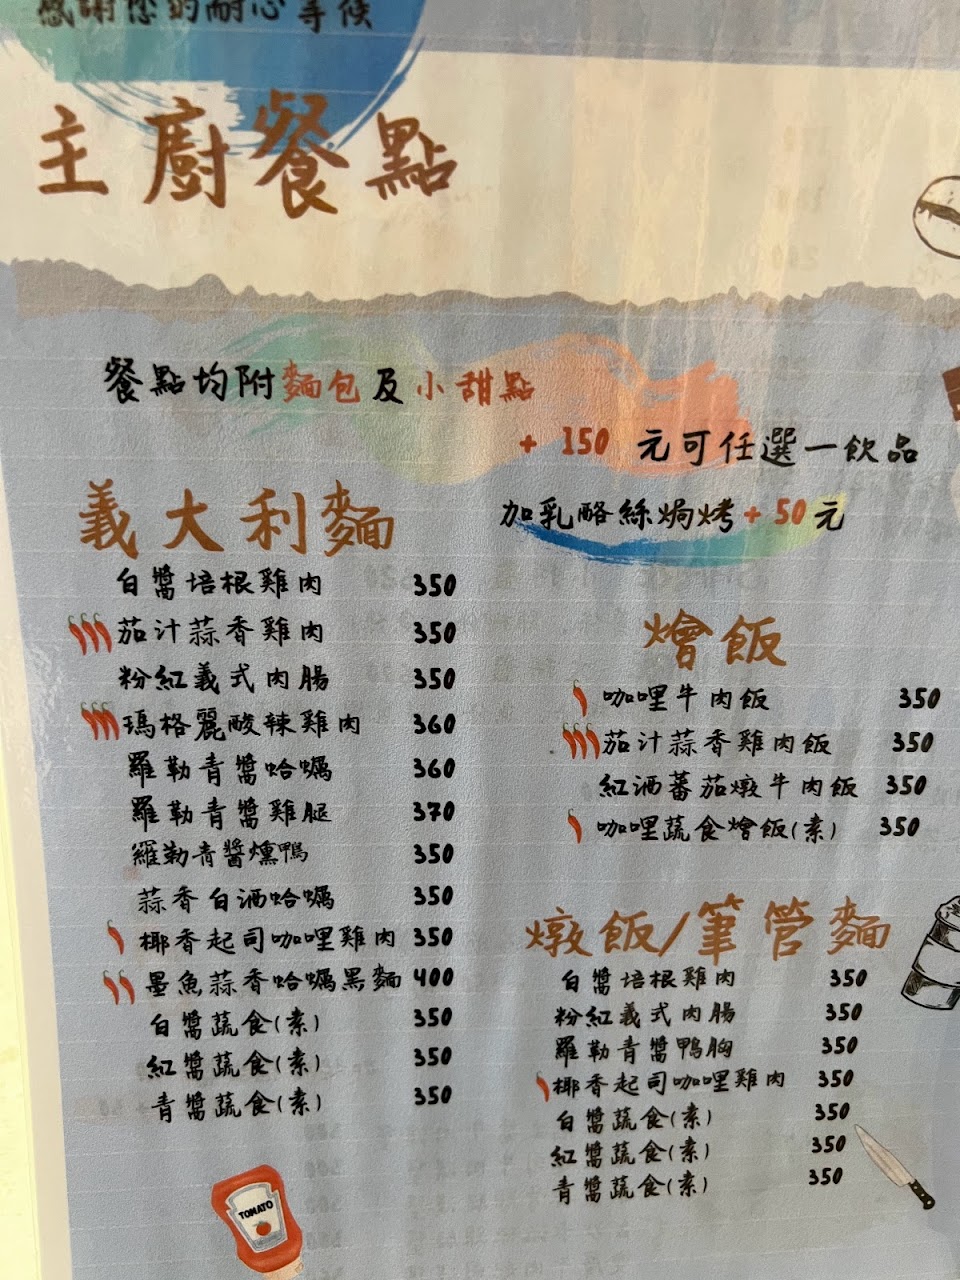 感謝您的耐心等候
主廚餐點
餐點均附麵包及小甜點
+ 150 元可任選一飲品
加乳酪絲焗烤+50元
義大利麵
白醬培根雞肉 350
茄汁蒜香雞肉 350
粉紅義式肉腸 350
瑪格麗酸辣雞肉 360
羅勒青醬蛤蠣 360
羅勒青醬雞腿 370
羅勒青醬燻鴨 350
蒜香白酒蛤蠣 350
椰香起司咖哩雞肉 350
墨魚蒜香蛤蠣黑麵 400
白醬蔬食(素) 350
紅醬蔬食(素) 350
青醬蔬食(素) 350
燴飯
咖哩牛肉飯 350
茄汁蒜香雞肉飯 350
紅酒蕃茄燉牛肉飯 350
咖哩蔬食燴飯(素) 350
燉飯/筆管麵
白醬培根雞肉 350
粉紅義式肉腸 350
羅勒青醬鴨胸 350
椰香起司咖哩雞肉 350
白醬蔬食(素) 350
紅醬蔬食(素) 350
青醬蔬食(素) 350
TOMATO